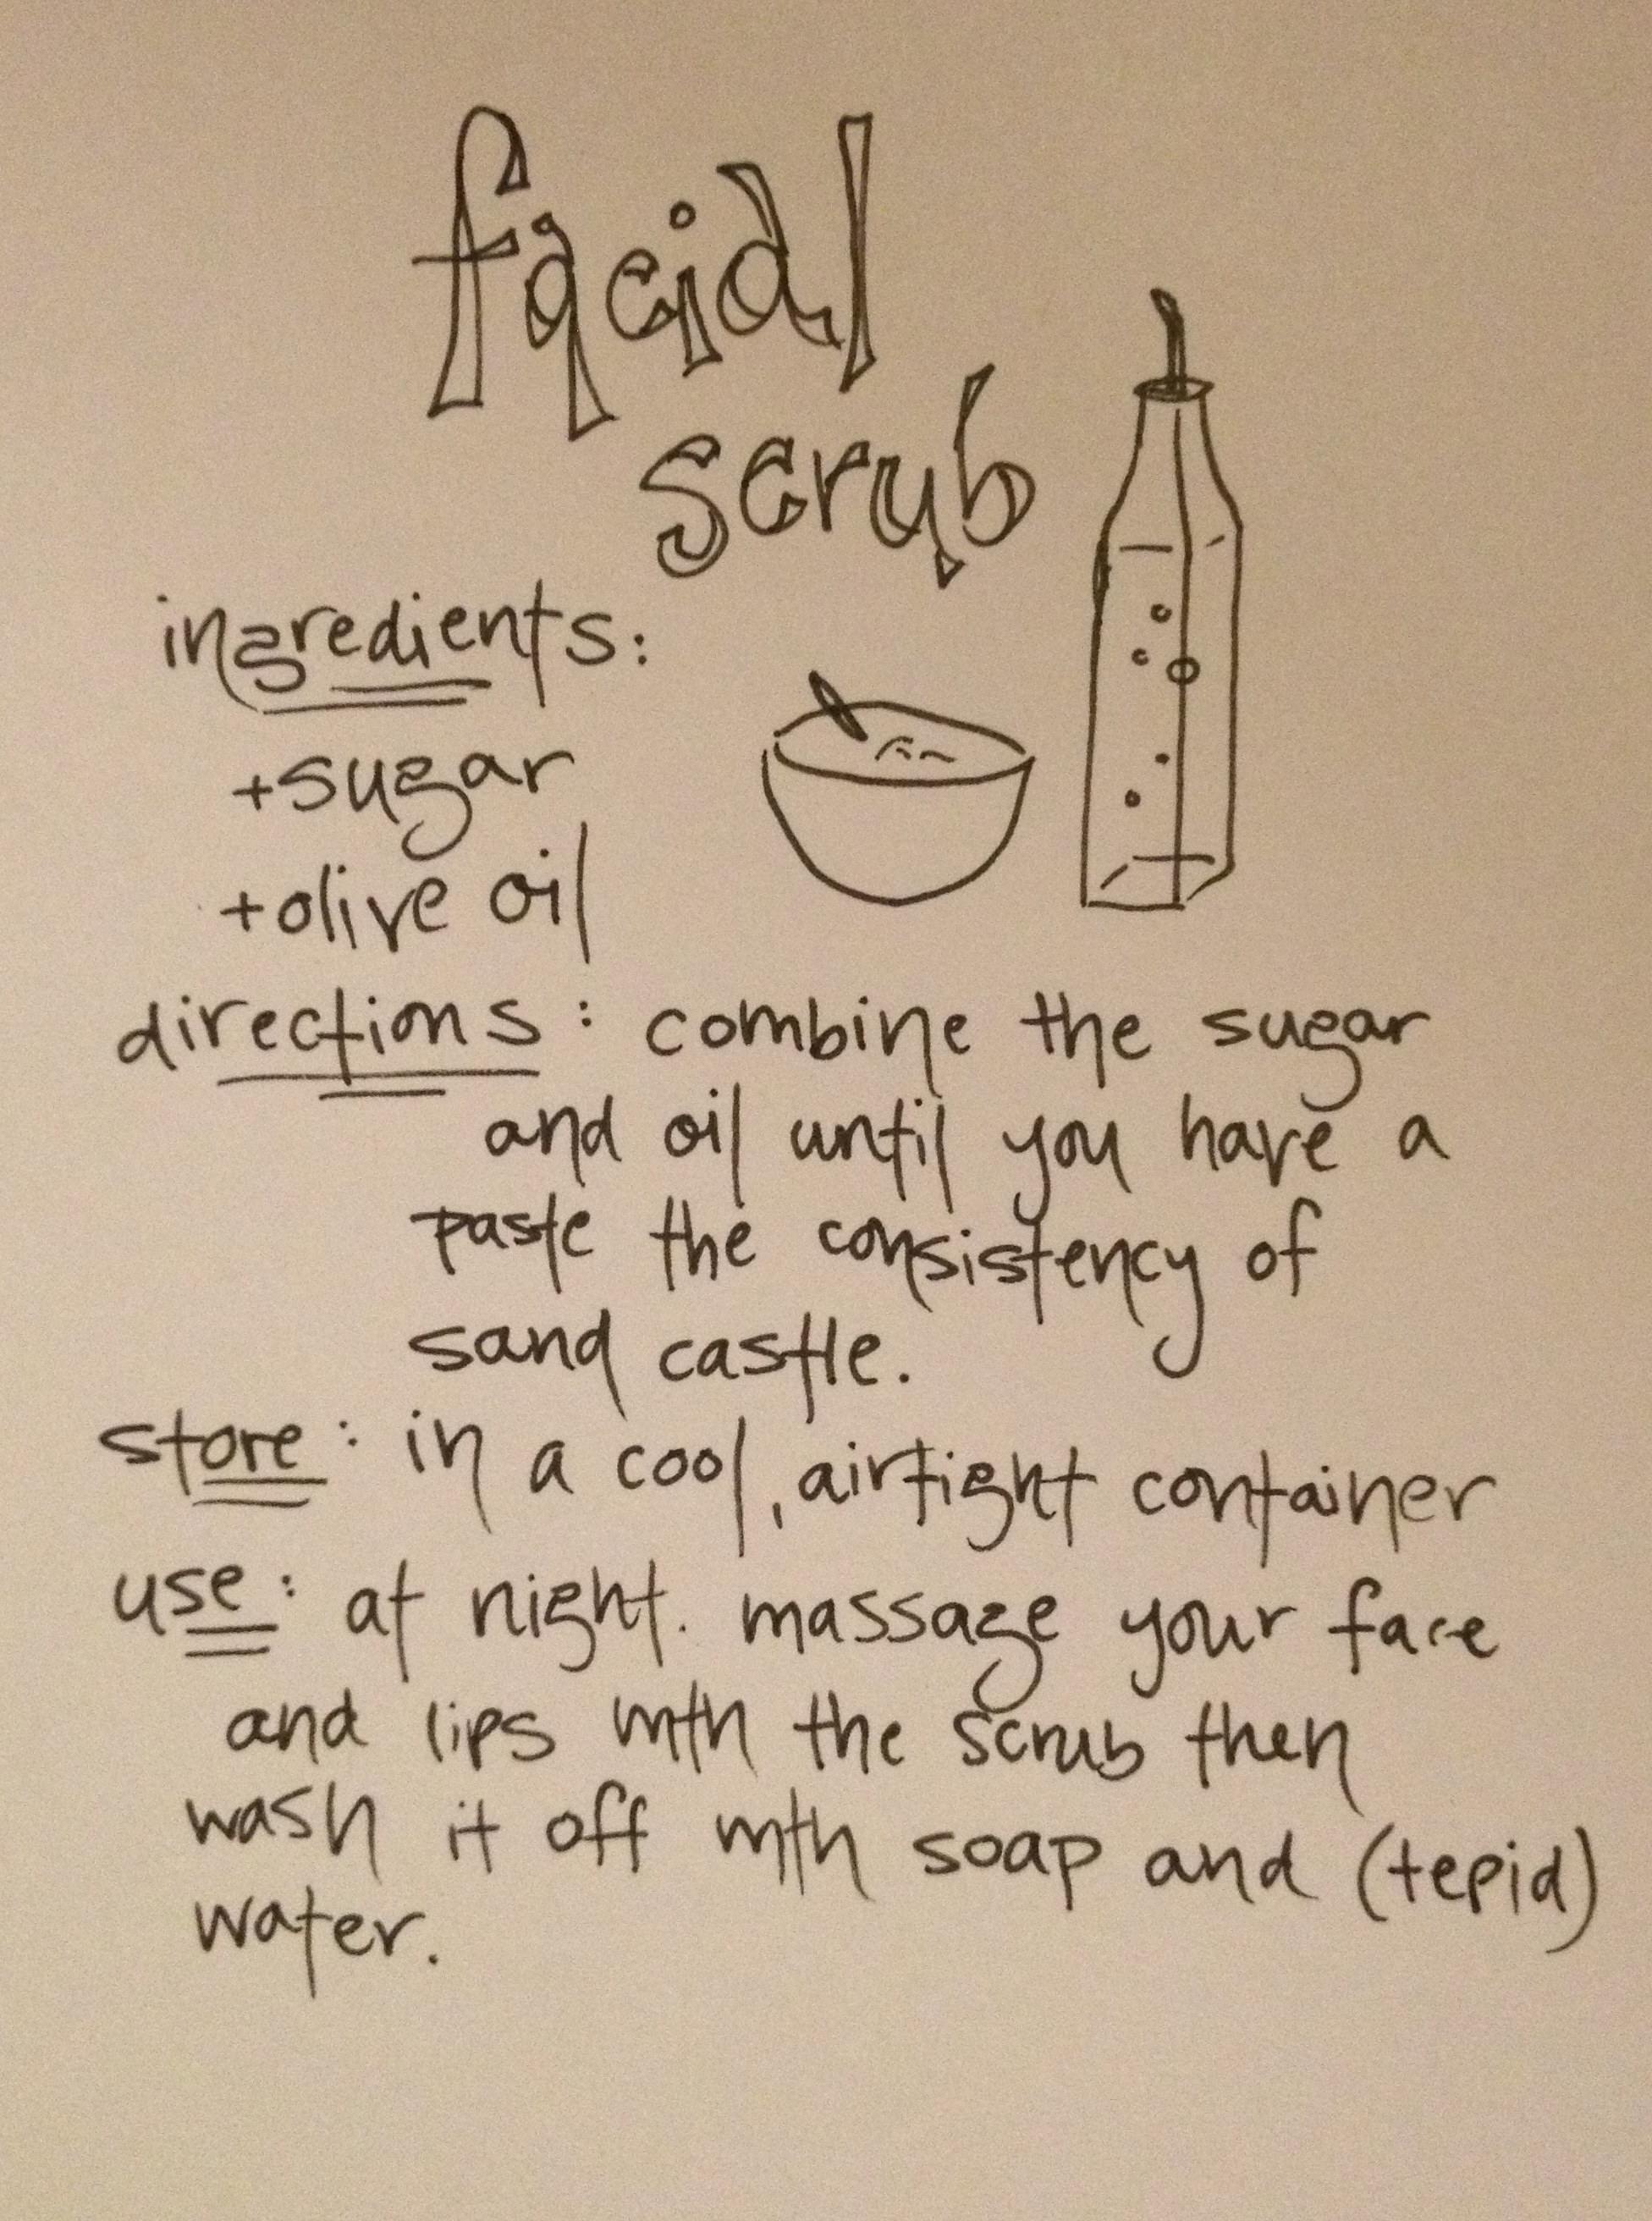 facial
scrub
ingredients:
+sugar
+olive oil
directions: combine the sugar
and oil until you have a
paste the consistency of
sand castle.
store: in a cool, airtight container
use: at night. massage your face
and lips with the scrub then
wash it off with soap and (tepid)
water.